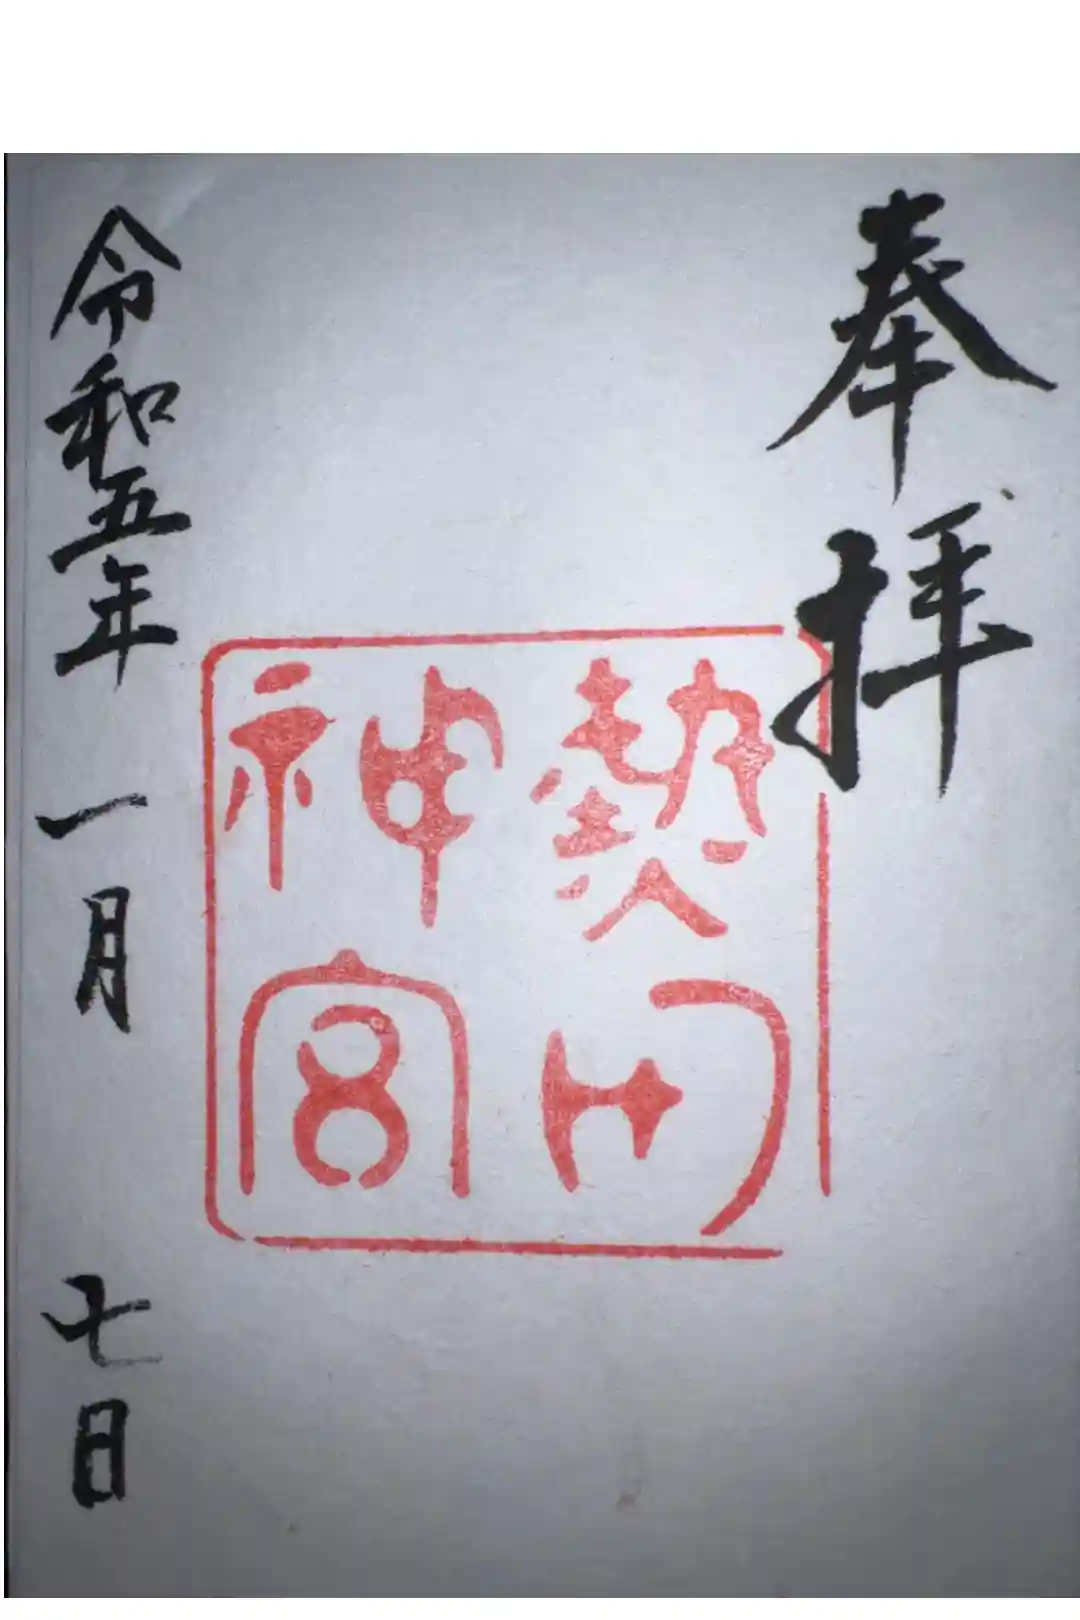 奉拝
熱田
神宮
令和五年一月七日